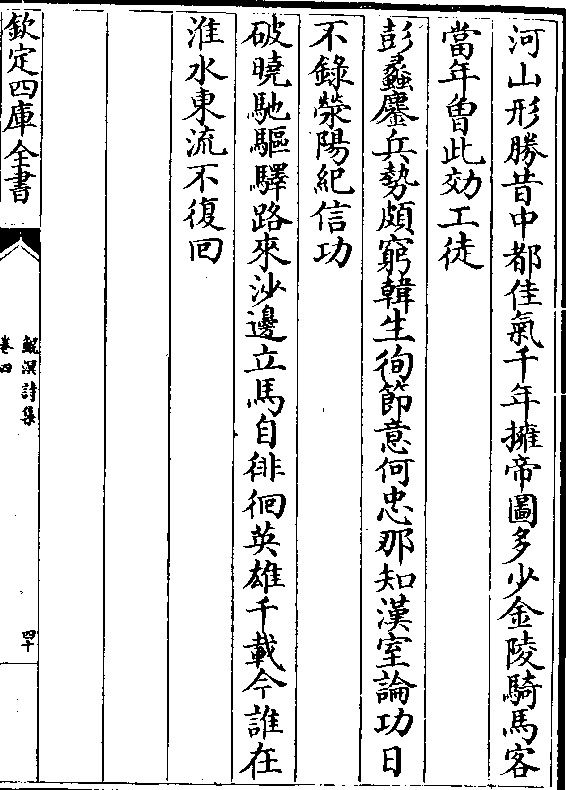 河山形勝昔中都佳氣千年擁帝圖多少金陵騎馬客
當年曾此効工徒
彭蠡鏖兵勢頗窮韓生徇節意何忠那知漢室論功日
不錄滎陽紀信功
破曉馳驅驛路來沙邊立馬自徘徊英雄千載今誰在
淮水東流不復回
欽定四庫全書
鯤溟詩集
卷四
四十